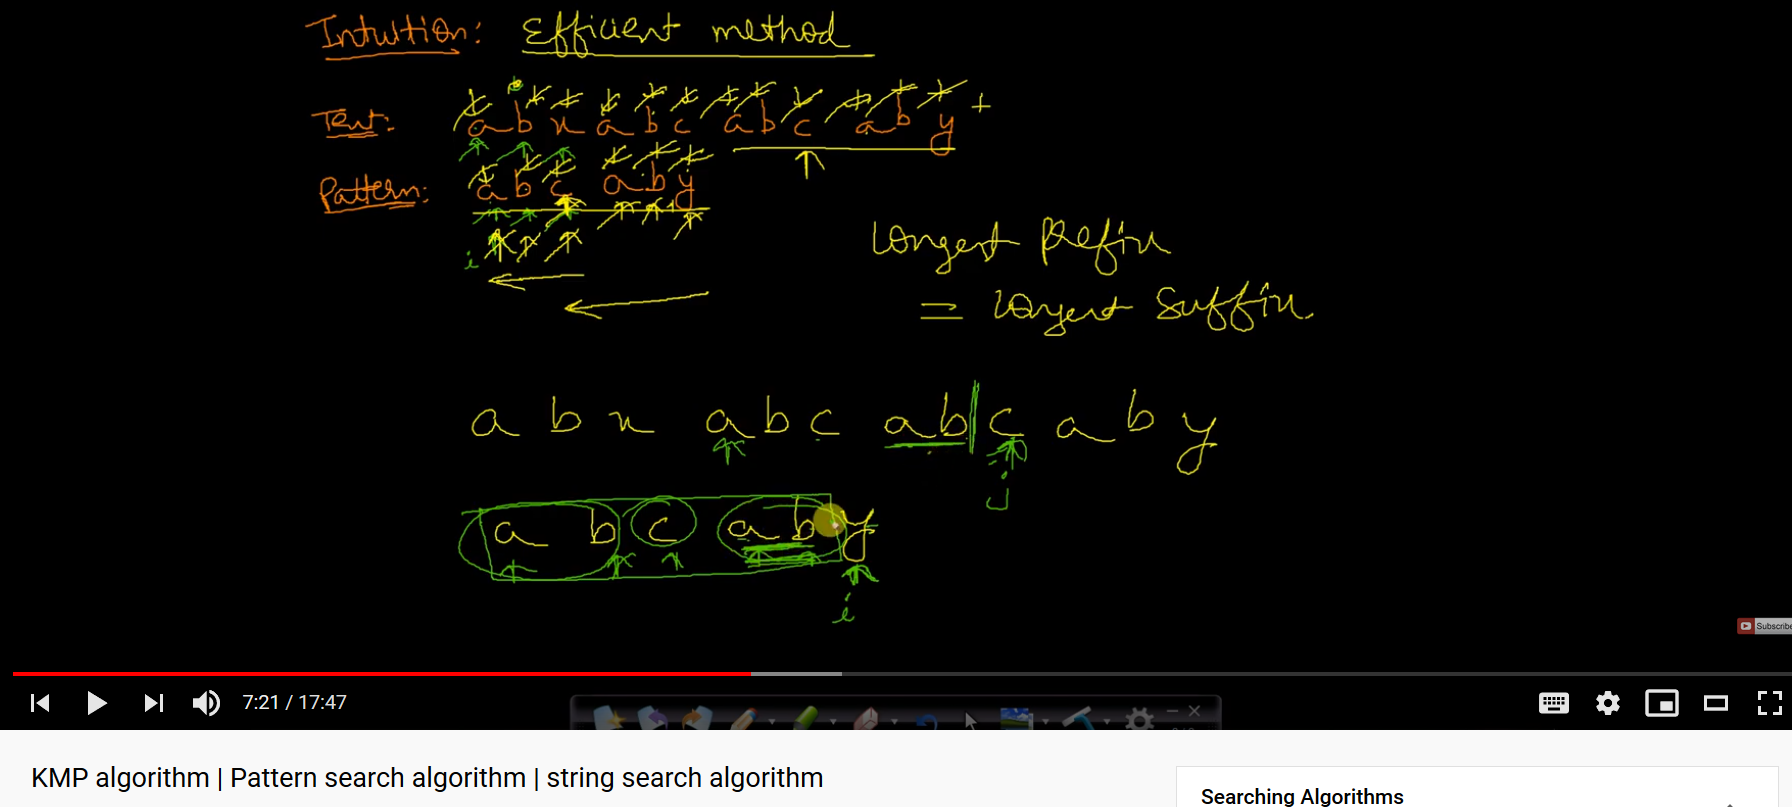 Intuition: Efficient method
Text: a b x a b c a b c a b y
Pattern: a b c a b y
i
Longest Prefix
= Longest Suffix
a b x a b c a b | c a b y
j
a b c a b y
i
Subscribe
7:21 / 17:47
KMP algorithm | Pattern search algorithm | string search algorithm
Searching Algorithms